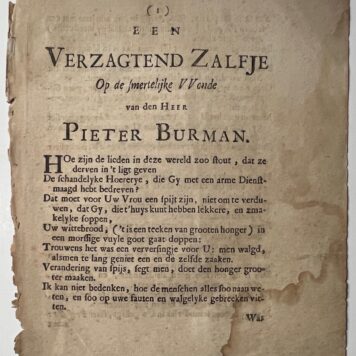 (1)
EEN
VERZAGTEND ZALFJE
Op de smertelijke VVonde
van den HEER
PIETER BURMAN.
HOe zijn de lieden in deze wereld zoo stout, dat ze
derven in 't ligt geven
De schandelyke Hoererye, die Gy met een arme Dienst-
maagd hebt bedreven?
Dat moet voor Uw Vrou een spijt zijn, niet om te verdu-
wen, dat Gy, die t'huys kunt hebben lekkere, en zma-
kelyke soppen,
Uw wittebrood, ('t is een teeken van grooten honger) in
een morssige vuyle goot gaat doppen:
Trouwens het was een verversingje voor U: men walgd,
alsmen te lang geniet een en de zelfde zaaken.
Verandering van spijs, segt men, doet den honger groo-
ter maaken.
Ik kan niet bedenken, hoe de menschen alles soo naau we-
ten, en soo op uwe fauten en walgelyke gebreeken vit-
ten.
Was